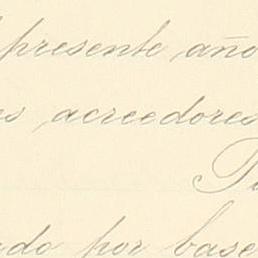 presente año
es acreedores
ndo por base